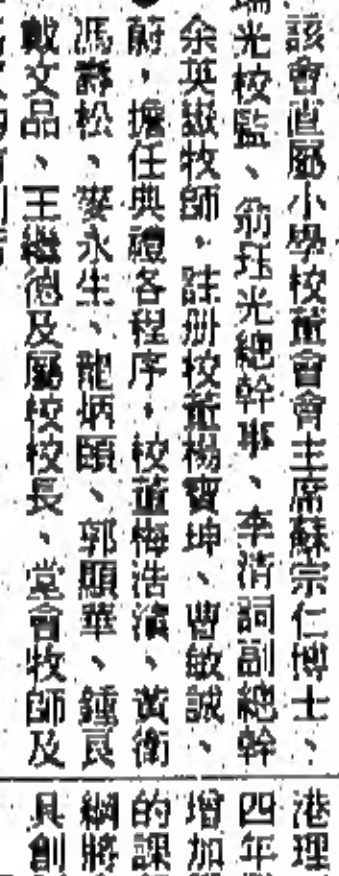 該會直屬小學校董會會主席蘇宗仁博士、
瑞光校監、翁珏光總幹事、李清詞副總幹
余英嶽牧師，註册校董楊寶坤、曹敏誠、
蔚，擔任典禮各程序，校董梅浩濱、黃衛
馮壽松、麥永生、龍炳頤、郭顯華、鐘良
戴文品、王繼德及屬校校長、堂會牧師及
港理
四年
增加
的課
綱將
具創